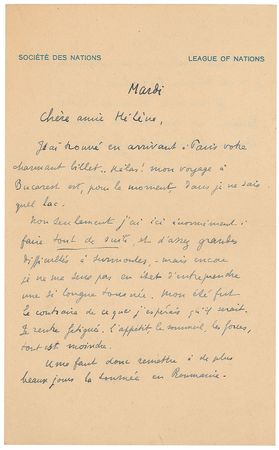 SOCIÉTÉ DES NATIONS
LEAGUE OF NATIONS
Mardi
Chère amie Hélène,
J'ai trouvé en arrivant à Paris votre
charmant billet.. Hélas! mon voyage à
Bucarest est, pour le moment, dans je ne sais
quel lac.
Non seulement j'ai ici énormément à
faire tout de suite, et d'assez grandes
difficultés à surmonter, - mais encore
je ne me sens pas en état d'entreprendre
une si longue tournée. Mon été fut
le contraire de ce que j'espérais qu'il serait.
Je rentre fatigué. L'appétit, le sommeil, les forces,
tout est moindre.
Il me faut donc remettre à de plus
beaux jours la tournée en Roumanie.